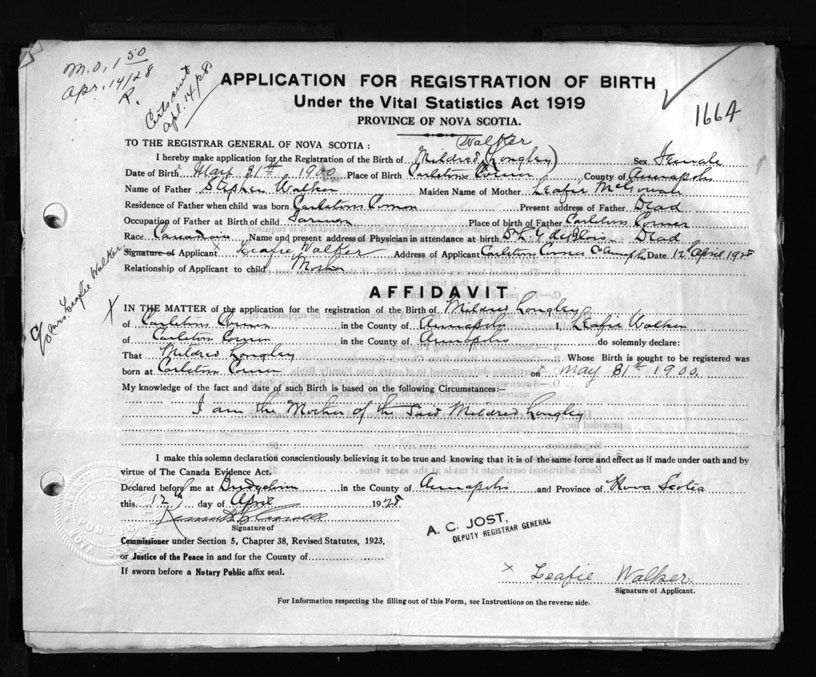 M.O. 1 50
Apr. 14/28
Cert sent
apl. 14/28
1664
APPLICATION FOR REGISTRATION OF BIRTH
Under the Vital Statistics Act 1919
PROVINCE OF NOVA SCOTIA.
TO THE REGISTRAR GENERAL OF NOVA SCOTIA:
Walker
I hereby make application for the Registration of the Birth of Mildred (Longley) Sex Female
Date of Birth May 31st, 1900 Place of Birth Carletons Corner County of Annapolis
Name of Father Stephen Walker Maiden Name of Mother Leafie McGowan
Residence of Father when child was born Carletons Corner Present address of Father Dead
Occupation of Father at Birth of child Place of birth of Father Carletons Corner
Race Canadian Name and present address of Physician in attendance at birth Dead
Signature of Applicant x Leafie Walker Address of Applicant Carletons Corner Date, 12th April 1928
Relationship of Applicant to child Mother
c/o Mrs. Leafie Walker
AFFIDAVIT
IN THE MATTER of the application for the registration of the Birth of Mildred Longley
of Carletons Corner in the County of Annapolis I, Leafie Walker
of Carletons Corner in the County of Annapolis do solemnly declare:
That Mildred Longley Whose Birth is sought to be registered was
born at Carletons Corner on May 31st 1900
My knowledge of the fact and date of such Birth is based on the following Circumstances:—
I am the Mother of the Said Mildred Longley
I make this solemn declaration conscientiously believing it to be true and knowing that it is of the same force and effect as if made under oath and by
virtue of The Canada Evidence Act.
Declared before me at Bridgetown in the County of Annapolis and Province of Nova Scotia
this 12th day of April 1928
Signature of
Commissioner under Section 5, Chapter 38, Revised Statutes, 1923,
or Justice of the Peace in and for the County of
If sworn before a Notary Public affix seal.
A. C. JOST,
DEPUTY REGISTRAR GENERAL
x Leafie Walker
Signature of Applicant.
For Information respecting the filling out of this Form, see Instructions on the reverse side.